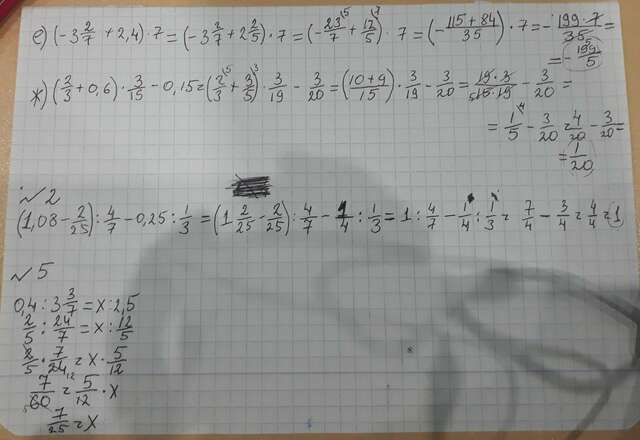 е) (-3 2/7 + 2,4) · 7 = (-3 2/7 + 2 2/5) · 7 = (-23/7 + 12/5) · 7 = (-115 + 84/35) · 7 = -199 · 7/35 =
= -199/5
ж) (2/3 + 0,6) · 3/15 - 0,15 = (2/3 + 3/5) · 3/19 - 3/20 = (10+9/15) · 3/19 - 3/20 = 19 · 3/15 · 19 - 3/20 =
= 1/5 - 3/20 = 4/20 - 3/20 =
= 1/20
№2
(1,08 - 2/25) : 4/7 - 0,25 : 1/3 = (1 2/25 - 2/25) : 4/7 - 1/4 : 1/3 = 1 : 4/7 - 1/4 : 1/3 = 7/4 - 3/4 = 4/4 = 1
№5
0,4 : 3 3/7 = x : 2,5
2/5 : 24/7 = x : 12/5
2/5 · 7/24 = x · 5/12
7/60 = 5/12 · x
7/25 = x